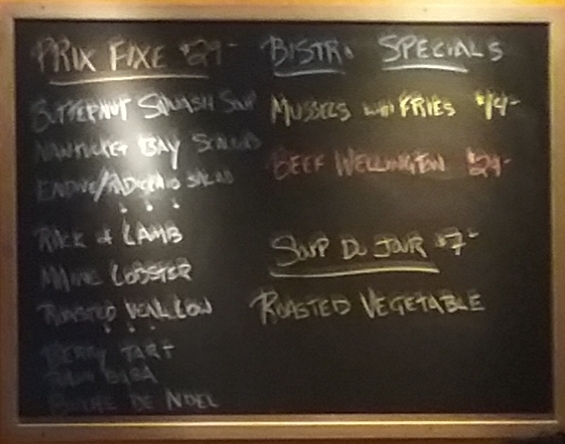 PRIX FIXE $29-
BUTTERNUT SQUASH SOUP
NANTUCKET BAY SCALLOPS
ENDIVE/RADICCHIO SALAD
RACK of LAMB
MAINE LOBSTER
ROASTED VEAL LOIN
BERRY TART
BABA
BUCHE DE NOEL
BISTRO SPECIALS
MUSSELS with FRIES $14-
BEEF WELLINGTON
SOUP DU JOUR $7-
ROASTED VEGETABLE